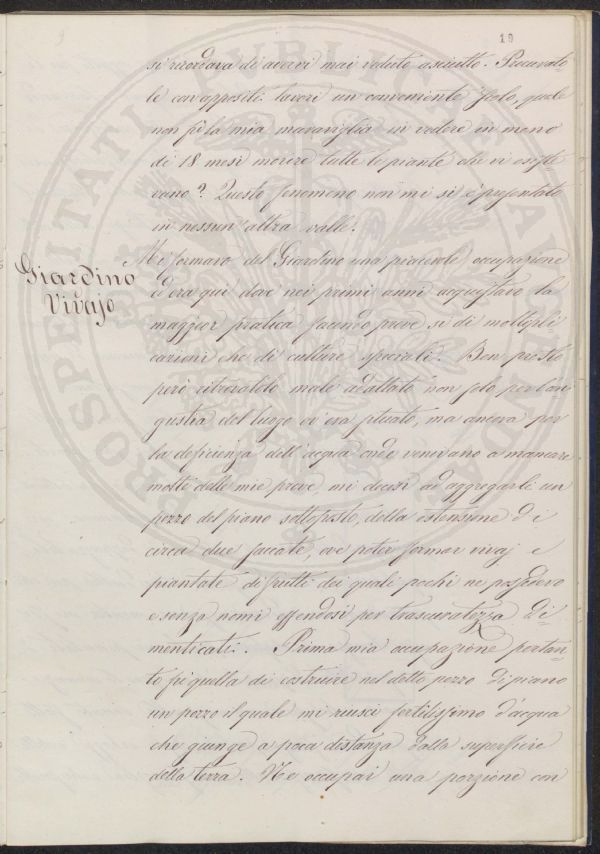 19
si ricordava di avervi mai veduto asciutto. Procurato-
le con appositi lavori un conveniente scolo, quale
non fù la mia maraviglia in vedere in meno
di 18 mesi morire tutte le piante che vi esiste-
vano? Questo fenomeno non mi si è presentato
in nessun'altra valle.
Giardino
Vivajo
Mi formavo del Giardino una piacevole occupazione
ed era qui dove nei primi anni acquistavo la
maggior pratica facendo prove sì di moltipli-
cazioni che di culture speciali. Ben presto
però ritrovatolo male adattato non solo per l'an-
gustia del luogo ov'era situato, ma ancora per
la deficienza dell'acqua onde venivano a mancare
molte delle mie prove, mi decisi ad aggregarle un
pezzo del piano sottoposto, della estensione di
circa due saccate, ove poter formar vivaj e
piantate di frutti dei quali pochi ne possedevo
e senza nomi essendosi per trascuratezza di-
menticati. Prima mia occupazione pertan-
to fù quella di costruire nel detto pezzo di piano
un pozzo il quale mi riuscì fertilissimo d'acqua
che giunge a poca distanza dalla superficie
della terra. Ne occupai una porzione con
PROSPERITATI PUBLICAE AUGENDAE